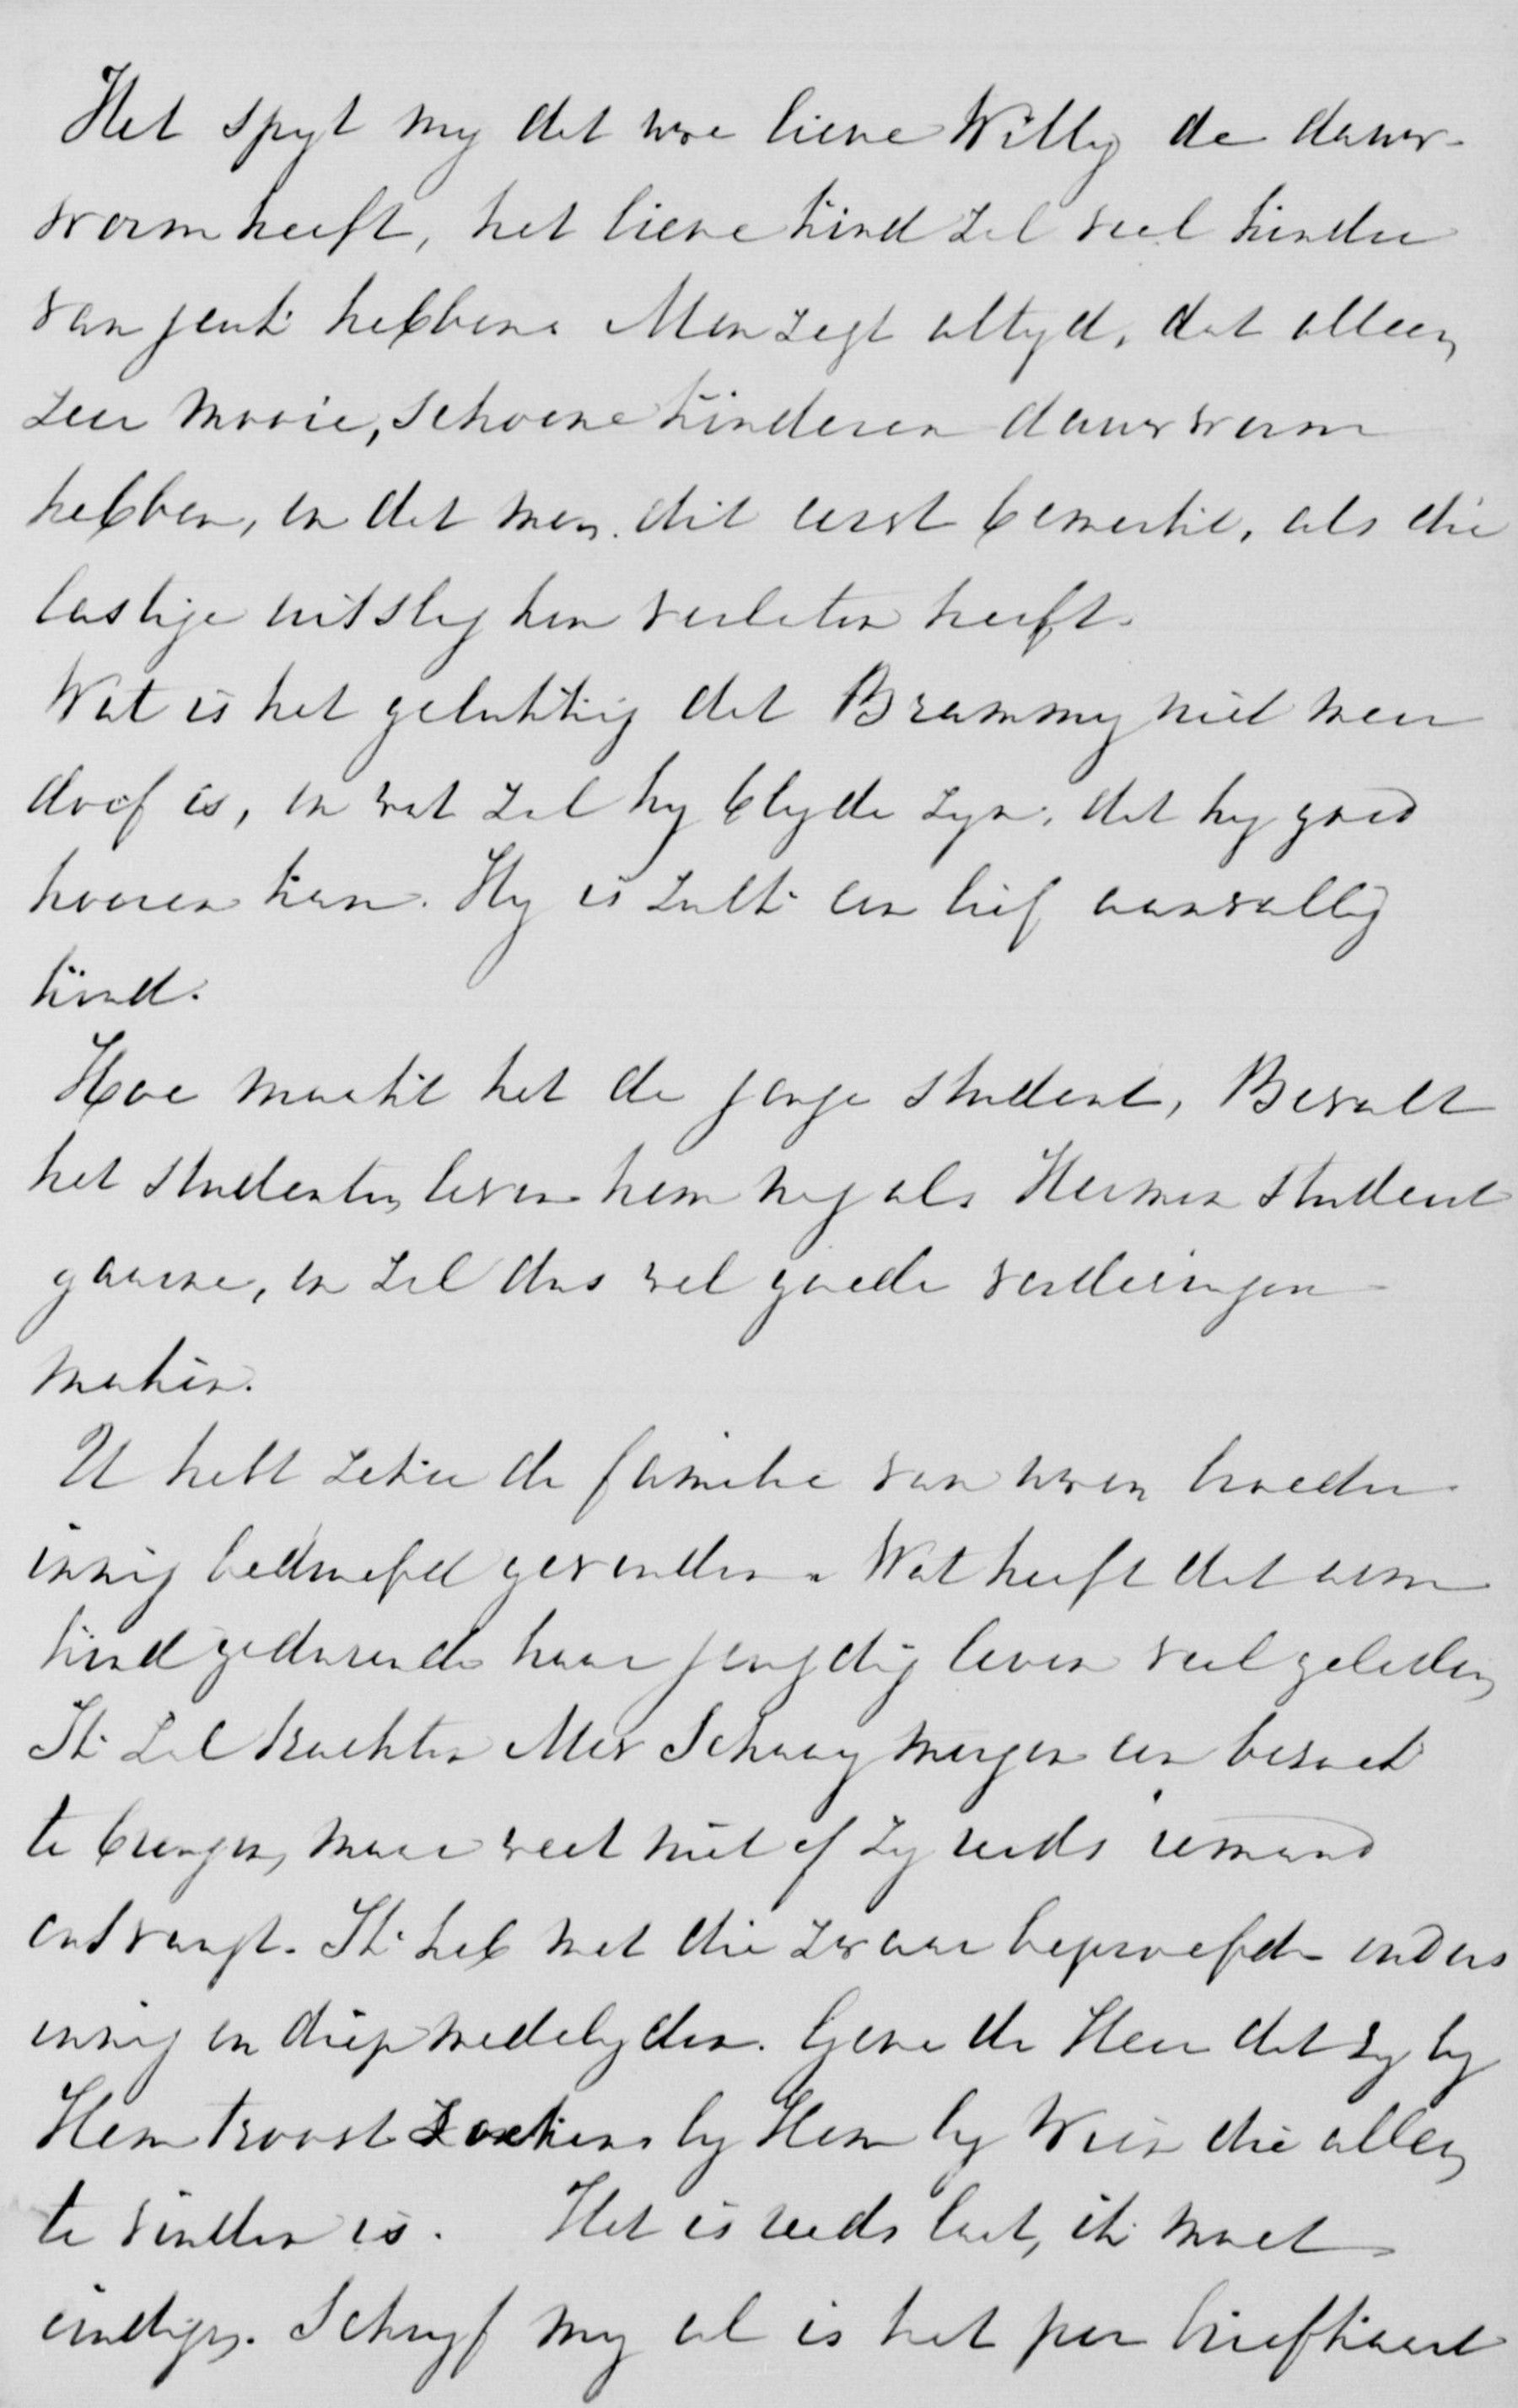 Het spyt my dat uwe lieve Willy de dauw-
worm heeft, het lieve kind zal veel hinder
van jeuk hebben. Men zegt altyd, dat alleen
zeer mooie, schoone kinderen dauwworm
hebben, en dat men dit eerst bemerkt, als die
lastige uitslag hen verlaten heeft.
Wat is het gelukkig dat Brammy niet meer
doof is, en wat zal hy blyde zyn, dat hy goed
hooren kan. Hy is zulk een lief aanvallig
kind.
Hoe maakt het de jonge student, Bevalt
het studenten leven hem nog als Herman studeert
gaarne, en zal dus wel goede vorderingen
maken.
U hebt zeker de familie van uwen broeder
innig bedroefd gevonden. Wat heeft dat arme
kind gedurende haar jeugdig leven veel geleden
Ik zal trachten Mev Schaay morgen een bezoek
te brengen, maar weet niet of zy reeds iemand
ontvangt. Ik heb met die zwaar beproefde ouders
innig en diep medelyden. Geve de Heer dat zy by
Hem troost zoeken, by Hem by Wien die alleen
te vinden is. Het is reeds laat, ik moet
eindigen. Schryf my al is het per briefkaart